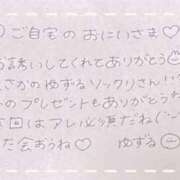 ご自宅のおにいさま♡
お誘いしてくれてありがとう
さかのゆずるソックリさん!
のプレゼントもありがとうね
回はアレ必須だね
た会おうね♡ ゆずる